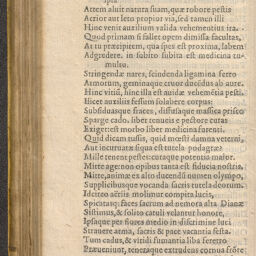 Artem aliut natura suam, quæ robore pestis
Acrior aut leto propior via, sed tamen illi
Hinc venit auxilium valida vehementius ira.
Quod primam si fallet opem dimissa facultas,
At tu præcipitem, qua spes est proxima, labem
Adgredere. in subito subita est medicina tu-
multu.
Stringendæ nares, scindenda ligamina ferro
Armorum, geminaque cruor ducendus ab aure.
Hinc vitii, hinc illa est auidæ vehemētia pestis.
Ilicet auxiliis fessum solabere corpus:
Subsiduasque fraces, diffusaque massica prisco
Sparge cado. liber tenueis e pectore curas
Exiget: est morbo liber medicina furenti.
Quid dicam tussis, quid mœsti damna veterni,
Aut incuruatæ siqua est tutela podagræ?
Mille tenent pestes: curaque potentior malor.
Mitte age: non opibus tanta est fiducia nostris,
Mitte, anime: ex alto ducendū numen olympo,
Supplicibusque vocanda sacris tutela deorum.
Idcirco aeriis molimur compita lucis,
Spicatasq; faces sacrum ad nemora alta Dianæ
Sistimus, & solito catuli velantur honore,
Ipsaque per flores medio in discrimine luci
Strauere arma, sacris & pace vacantia festa.
Tum cadus, & viridi fumantia liba feretro
Præueniunt, teneraque extrudens cornua frōte